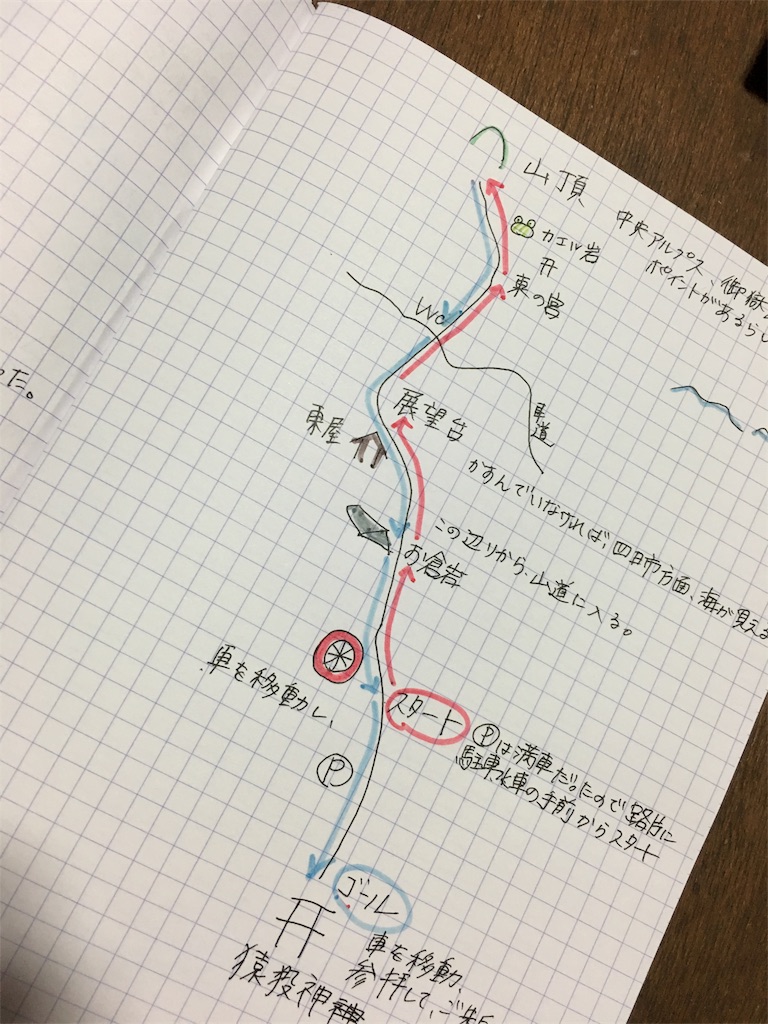 山頂
中央アルプス、御嶽
ポイントがあるらし
カエル岩
東の宮
WC
った。
展望台
県道
東屋
かすんでいなければ、四日市方面、海が見える
この辺りから、山道に入る。
お倉岩
車を移動し、
スタート
Ⓟは満車だったので路片に
駐車水車の手前からスタート
Ⓟ
ゴール
車を移動、
参拝して、ご朱
猿投神社